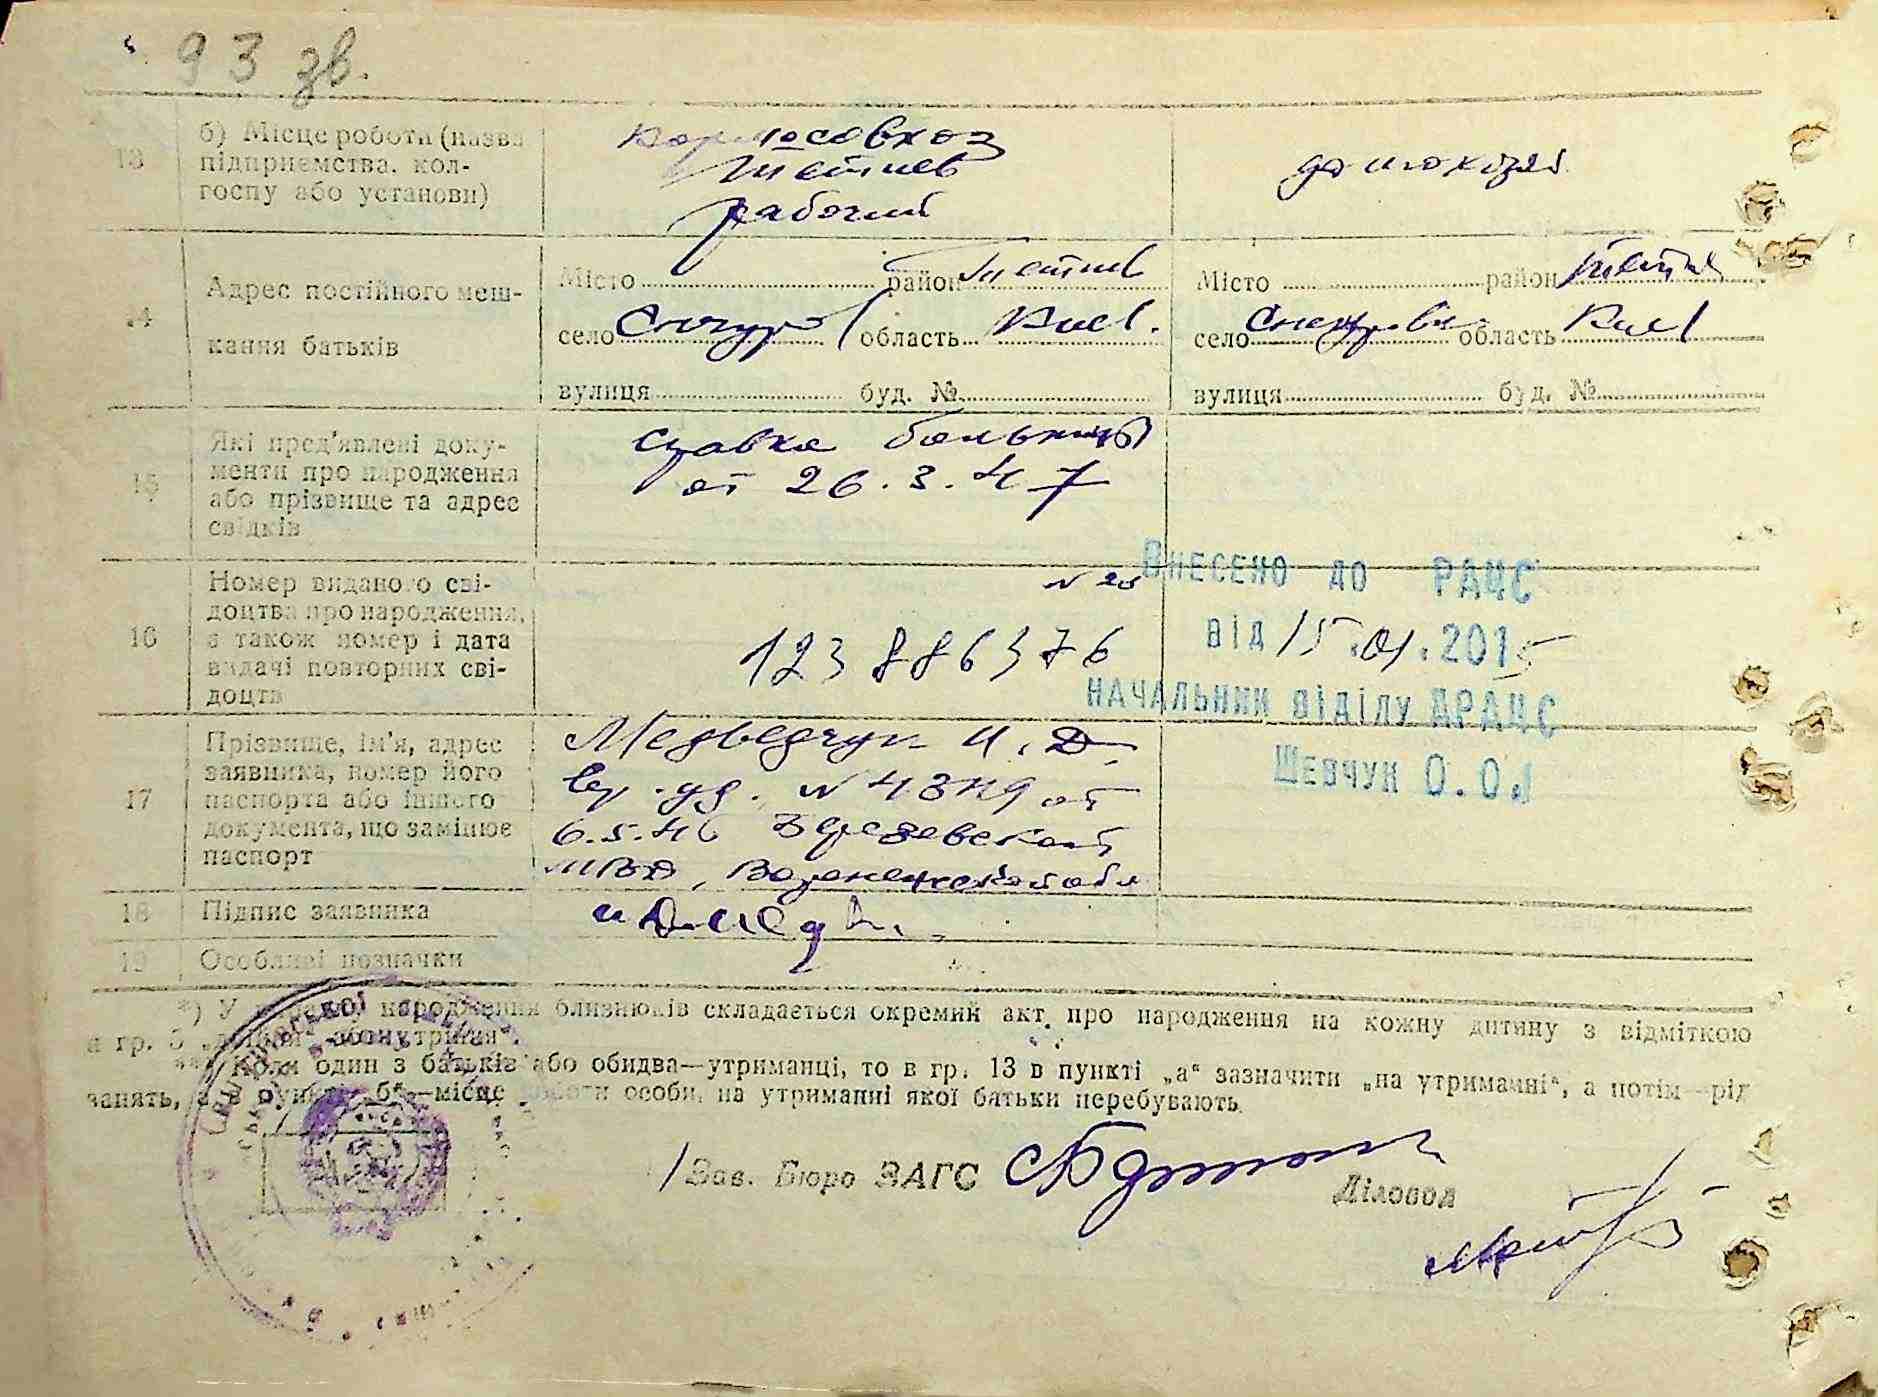 93 зв.
13
б) Місце роботи (назва
підприємства, кол-
госпу або установи)
Тетиев
рабочий
домохозяй
14
Адрес постійного меш-
кання батьків
Місто район Тетиев
село область Киев.
вулиця буд. №
Місто район Тетиев
село область Киев
вулиця буд. №
15
Які пред'явлені доку-
менти про народження
або прізвище та адрес
свідків
справка больницы
от 26.3.47
16
Номер виданого сві-
доцтва про народження,
а також номер і дата
видачі повторних сві-
доцтв
123886376
Внесено до РАЦС
від 15.01.2015
начальник відділу ДРАЦС
Шевчук О.О.
17
Прізвище, ім'я, адрес
заявника, номер його
паспорта або іншого
документа, що замінює
паспорт
Медведчук И.Д.
вр. уд. от
6.5.46
МВД, обл.
18
Підпис заявника
19
Особливі позначки
*) У випадку народження близнюків складається окремий акт про народження на кожну дитину з відміткою
в гр. 5 „двійня“ або „утрійня“.
**) Коли один з батьків або обидва—утриманці, то в гр. 13 в пункті „а“ зазначити „на утриманні“, а потім—рід
занять, а в пункті „б“—місце роботи особи, на утриманні якої батьки перебувають.
Зав. Бюро ЗАГС
Діловод